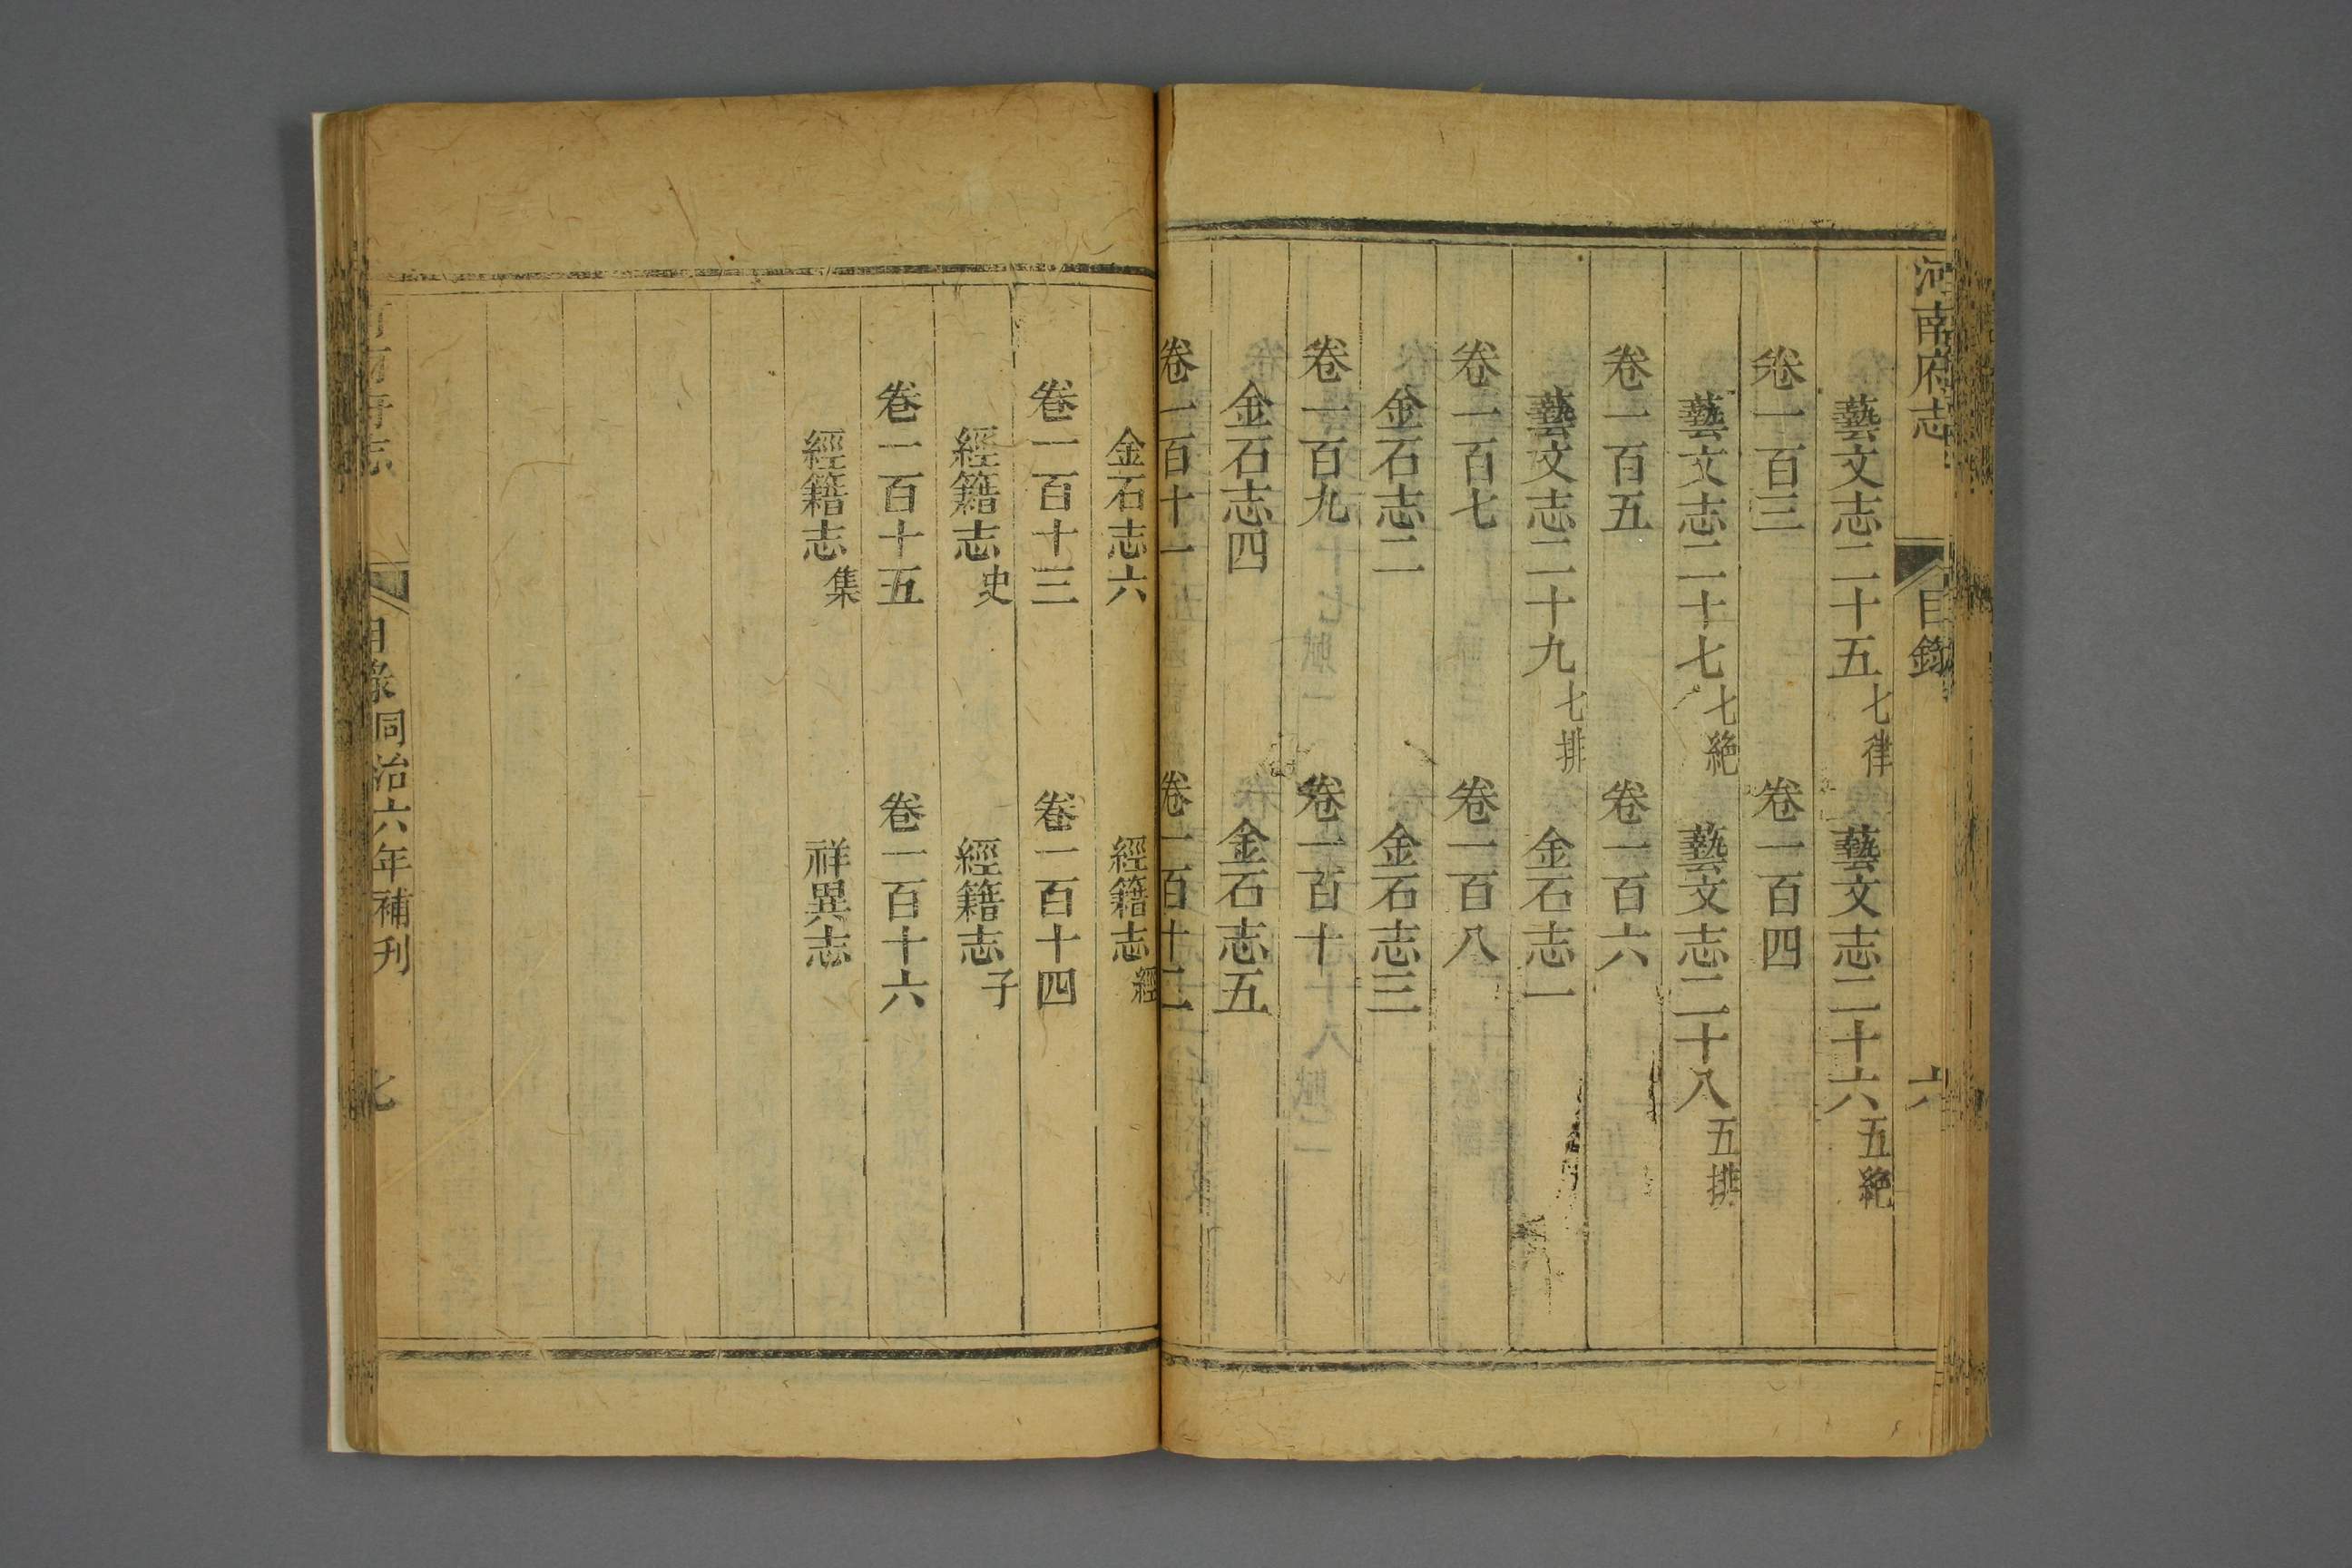 河南府志 目錄 六
藝文志二十五七律 藝文志二十六五絕
卷一百三 卷一百四
藝文志二十七七絕 藝文志二十八五排
卷一百五 卷一百六
藝文志二十九七排 金石志一
卷一百七 卷一百八
金石志二 金石志三
卷一百九 卷一百十
金石志四 金石志五
卷一百十一 卷一百十二
金石志六 經籍志經
卷一百十三 卷一百十四
經籍志史 經籍志子
卷一百十五 卷一百十六
經籍志集 祥異志
河南府志 目錄 同治六年補刋 七